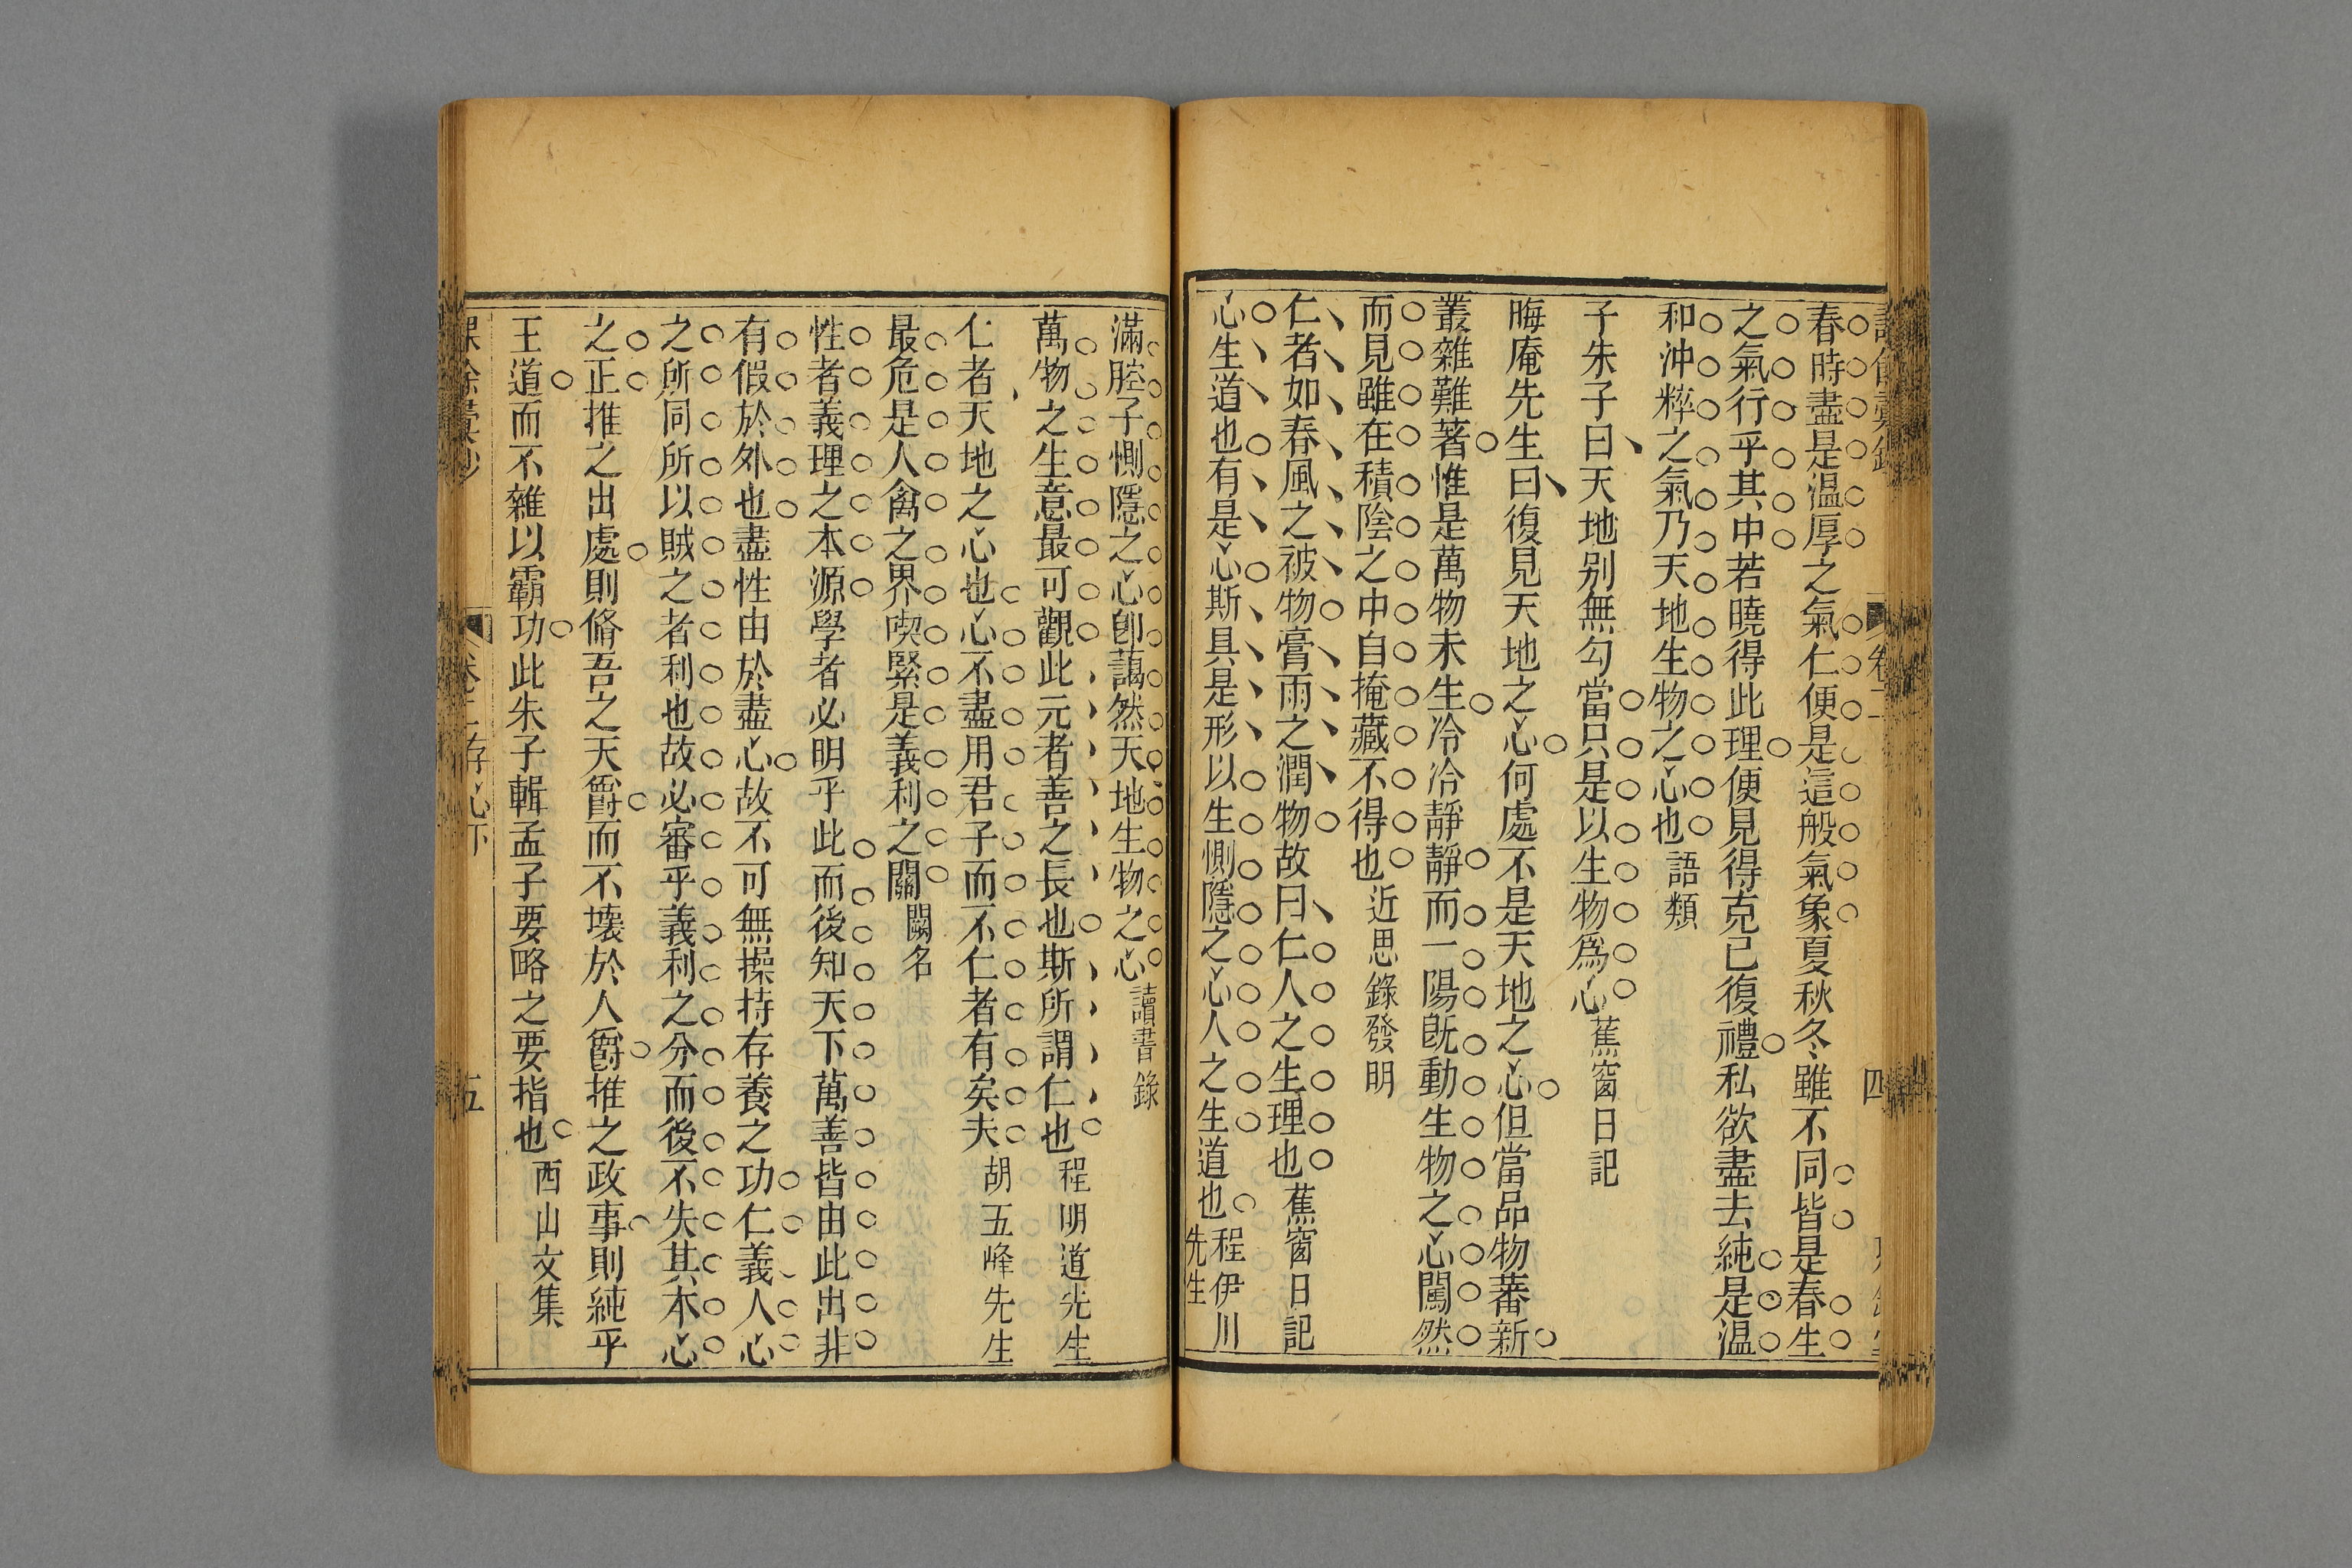 春時盡是温厚之氣仁便是這般氣象夏秋冬雖不同皆是春生
之氣行乎其中若曉得此理便見得克己復禮私欲盡去純是温
和沖粹之氣乃天地生物之心也語類
子朱子曰天地别無勾當只是以生物爲心蕉窗日記
晦庵先生曰復見天地之心何處不是天地之心但當品物蕃新
叢雜難著惟是萬物未生冷冷靜靜而一陽旣動生物之心闖然
而見雖在積陰之中自掩藏不得也近思錄發明
仁者如春風之被物膏雨之潤物故曰仁人之生理也蕉窗日記
心生道也有是心斯具是形以生惻隱之心人之生道也程伊川先生
滿腔子惻隱之心卽藹然天地生物之心讀書錄
萬物之生意最可觀此元者善之長也斯所謂仁也程明道先生
仁者天地之心也心不盡用君子而不仁者有矣夫胡五峰先生
最危是人禽之界喫緊是義利之關闕名
性者義理之本源學者必明乎此而後知天下萬善皆由此出非
有假於外也盡性由於盡心故不可無操持存養之功仁義人心
之所同所以賊之者利也故必審乎義利之分而後不失其本心
之正推之出處則脩吾之天爵而不壞於人爵推之政事則純乎
王道而不雜以霸功此朱子輯孟子要略之要指也西山文集
卷二存心下
五